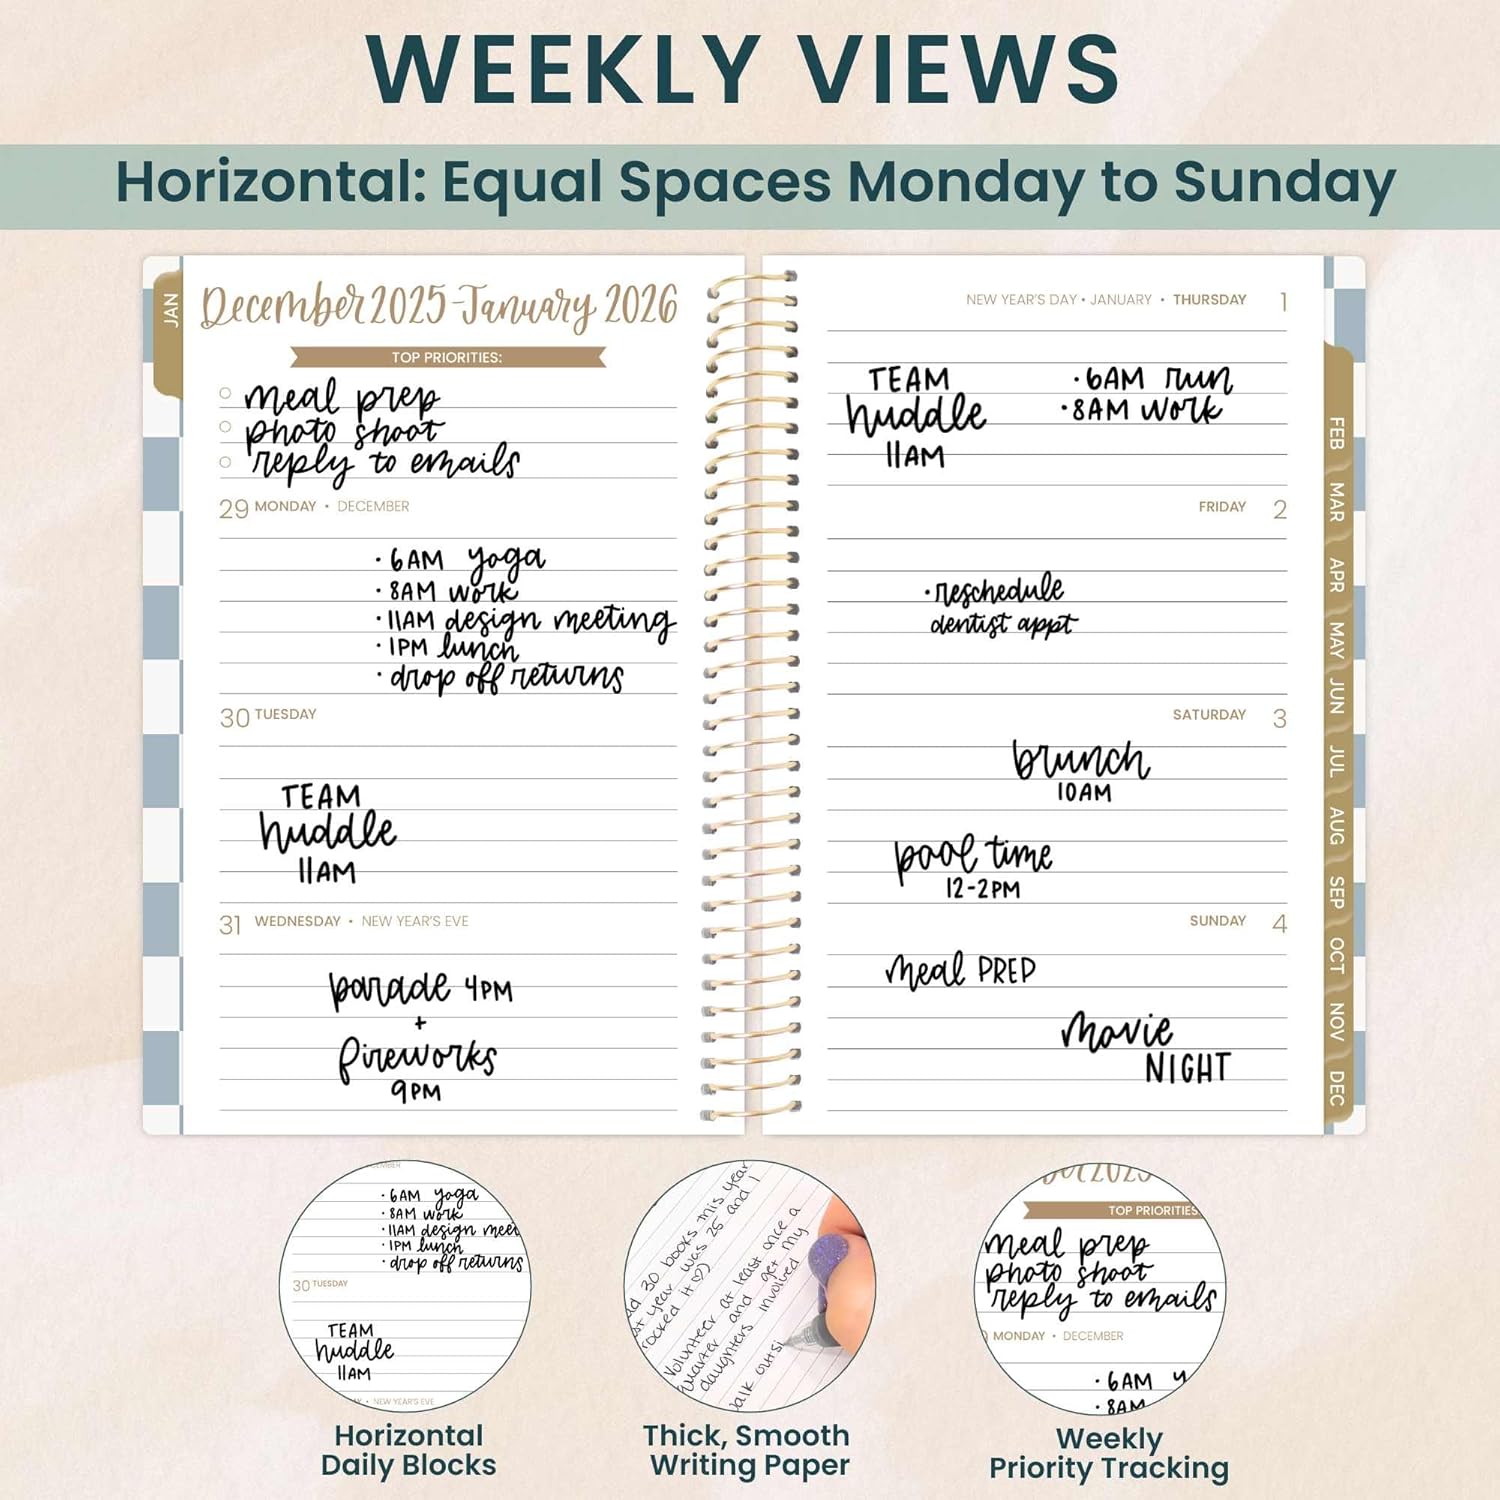 WEEKLY VIEWS
Horizontal: Equal Spaces Monday to Sunday
JAN
December 2025-January 2026
TOP PRIORITIES:
meal prep
photo shoot
reply to emails
29 MONDAY • DECEMBER
• 6AM yoga
• 8AM work
• 11AM design meeting
• 1PM lunch
• drop off returns
30 TUESDAY
TEAM
huddle
11AM
31 WEDNESDAY • NEW YEAR'S EVE
parade 4PM
+
fireworks
9PM
NEW YEAR'S DAY • JANUARY • THURSDAY 1
TEAM
huddle
11AM
• 6AM run
• 8AM work
FRIDAY 2
• reschedule
dentist appt
SATURDAY 3
brunch
10AM
pool time
12-2PM
SUNDAY 4
meal PREP
movie
NIGHT
FEB
MAR
APR
MAY
JUN
JUL
AUG
SEP
OCT
NOV
DEC
• 6AM yoga
• 8AM work
• 11AM design meet
• 1PM lunch
• drop off returns
30 TUESDAY
TEAM
huddle
11AM
• NEW YEAR'S EVE
Horizontal
Daily Blocks
30 books this year
year was 25 and I
rocked it ♡)
Volunteer at least once a
quarter and get my
daughters involved
outsi
Thick, Smooth
Writing Paper
TOP PRIORITIES
meal prep
photo shoot
reply to emails
MONDAY • DECEMBER
• 6AM y
• 8AM
Weekly
Priority Tracking